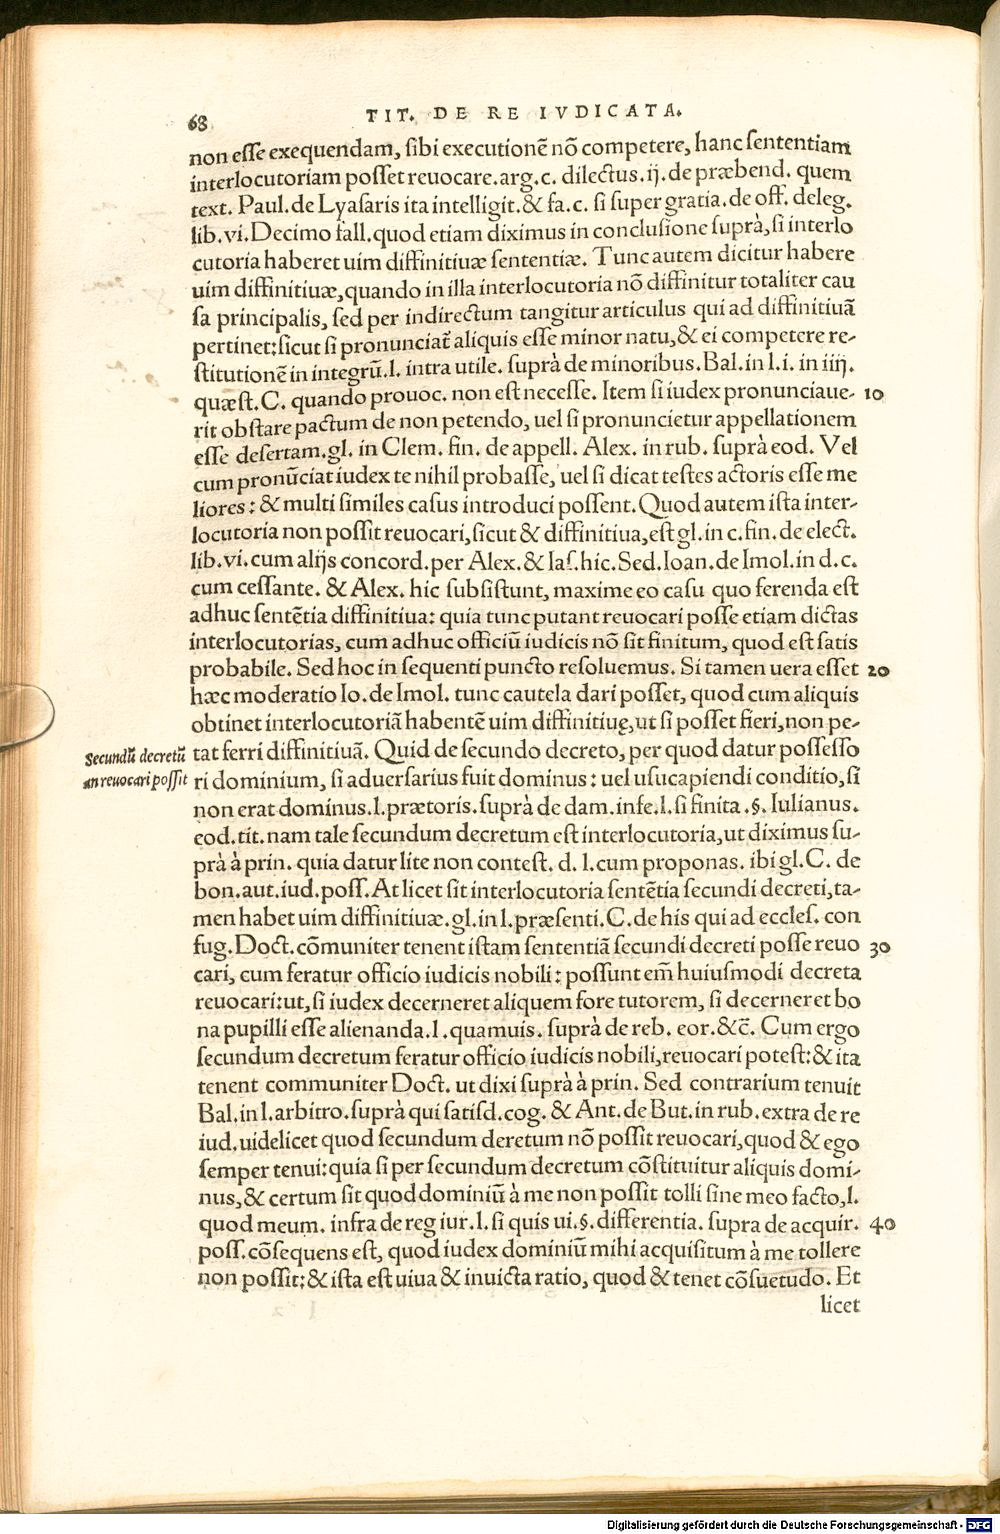 68
TIT. DE RE IVDICATA.
non esse exequendam, sibi executionē nō competere, hanc sententiam
interlocutoriam posset reuocare.arg.c. dilectus.ij.de præbend. quem
text. Paul.de Lyasaris ita intelligit.& fa.c. si super gratia.de off. deleg.
lib.vi.Decimo fall.quod etiam diximus in conclusione suprà,si interlo
cutoria haberet uim diffinitiuæ sententiæ. Tunc autem dicitur habere
uim diffinitiuæ,quando in illa interlocutoria nō diffinitur totaliter cau
sa principalis, sed per indirectum tangitur articulus qui ad diffinitiuā
pertinet:sicut si pronunciat̃ aliquis esse minor natu,& ei competere re-
stitutionē in integrū.l. intra utile. suprà de minoribus.Bal.in l.i. in iiij.
quæst.C. quando prouoc. non est necesse. Item si iudex pronunciaue- 10
rit obstare pactum de non petendo, uel si pronuncietur appellationem
esse desertam.gl. in Clem. fin. de appell. Alex. in rub. suprà eod. Vel
cum pronūciat iudex te nihil probasse, uel si dicat testes actoris esse me
liores: & multi similes casus introduci possent. Quod autem ista inter-
locutoria non possit reuocari,sicut & diffinitiua,est gl.in c.fin.de elect.
lib.vi.cum alijs concord.per Alex.& Ias.hic.Sed.Ioan.de Imol.in d.c.
cum cessante. & Alex. hic subsistunt, maxime eo casu quo ferenda est
adhuc sentētia diffinitiua: quia tunc putant reuocari posse etiam dictas
interlocutorias, cum adhuc officiū iudicis nō sit finitum, quod est satis
probabile. Sed hoc in sequenti puncto resoluemus. Si tamen uera esset 20
hæc moderatio Io.de Imol. tunc cautela dari posset, quod cum aliquis
obtinet interlocutoriā habentē uim diffinitiuę,ut si posset fieri,non pe-
Secundū decretū
an reuocari possit
tat ferri diffinitiuā. Quid de secundo decreto, per quod datur possesso
ri dominium, si aduersarius fuit dominus: uel usucapiendi conditio,si
non erat dominus.l.prætoris.suprà de dam.infe.l.si finita.§.Iulianus.
eod.tit.nam tale secundum decretum est interlocutoria,ut diximus su-
prà à prin. quia datur lite non contest. d. l.cum proponas. ibi gl.C. de
bon.aut.iud.poss.At licet sit interlocutoria sentētia secundi decreti,ta-
men habet uim diffinitiuæ.gl.in l.præsenti.C.de his qui ad eccles. con
fug.Doct.cōmuniter tenent istam sententiā secundi decreti posse reuo 30
cari, cum feratur officio iudicis nobili: possunt em̄ huiusmodi decreta
reuocari:ut,si iudex decerneret aliquem fore tutorem, si decerneret bo
na pupilli esse alienanda.l.quamuis. suprà de reb. eor.&c̄. Cum ergo
secundum decretum feratur officio iudicis nobili,reuocari potest:& ita
tenent communiter Doct. ut dixi suprà à prin. Sed contrarium tenuit
Bal.in l.arbitro.suprà qui satisd.cog. & Ant.de But.in rub.extra de re
iud.uidelicet quod secundum deretum nō possit reuocari,quod & ego
semper tenui:quia si per secundum decretum cōstituitur aliquis domi-
nus,& certum sit quod dominiū à me non possit tolli sine meo facto,l.
quod meum. infra de reg iur.l.si quis ui.§.differentia. supra de acquir. 40
poss.cōsequens est, quod iudex dominiū mihi acquisitum à me tollere
non possit:& ista est uiua & inuicta ratio, quod & tenet cōsuetudo. Et
licet
Digitalisierung gefördert durch die Deutsche Forschungsgemeinschaft - DFG